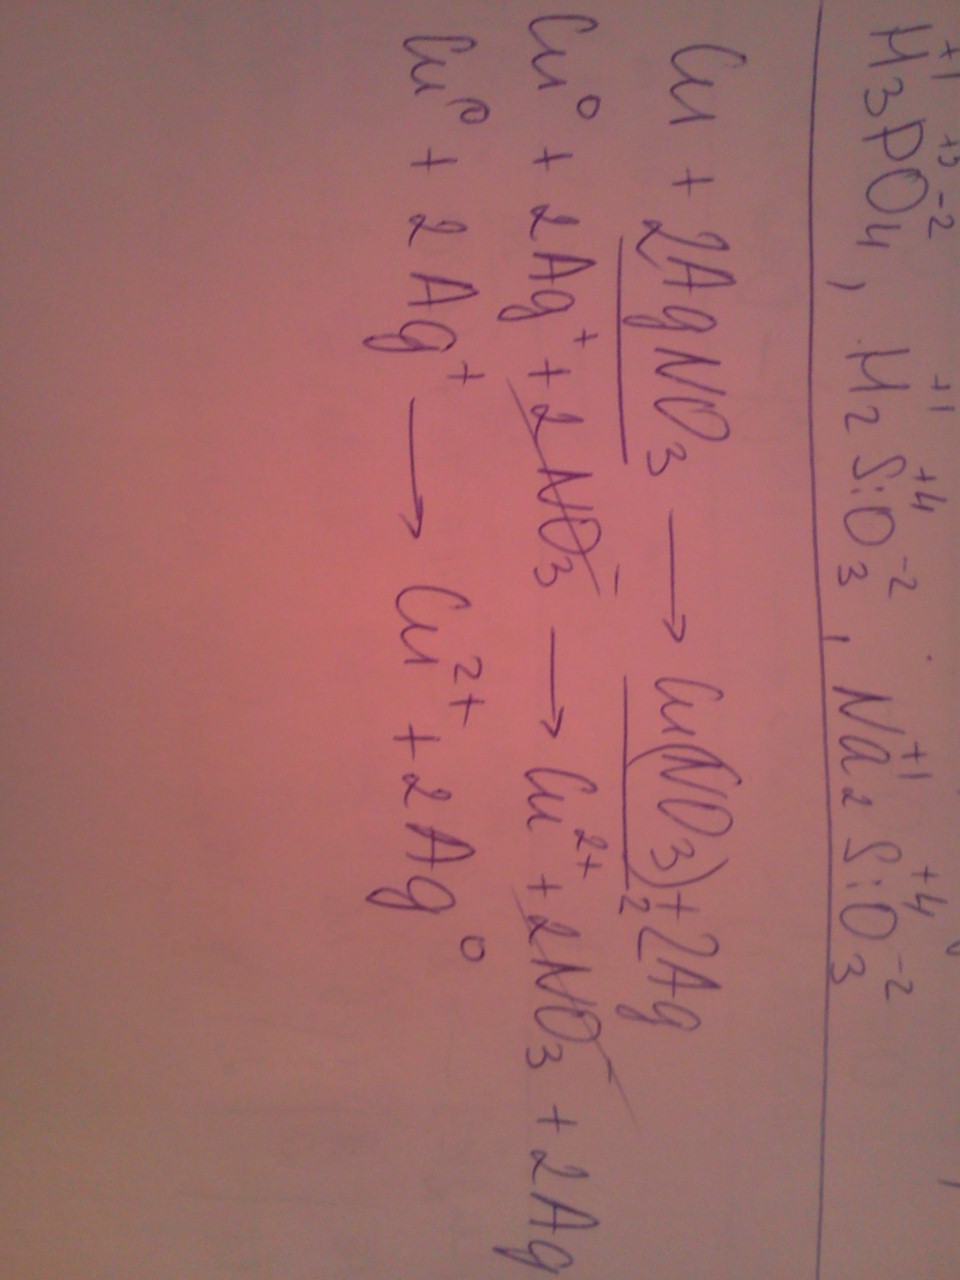 H₃⁺¹P⁺⁵O₄⁻², H₂⁺¹Si⁺⁴O₃⁻², Na₂⁺¹Si⁺⁴O₃⁻²
Cu + 2AgNO₃ → Cu(NO₃)₂ + 2Ag
Cu⁰ + 2Ag⁺ + 2NO₃⁻ → Cu²⁺ + 2NO₃⁻ + 2Ag
Cu⁰ + 2Ag⁺ → Cu²⁺ + 2Ag⁰